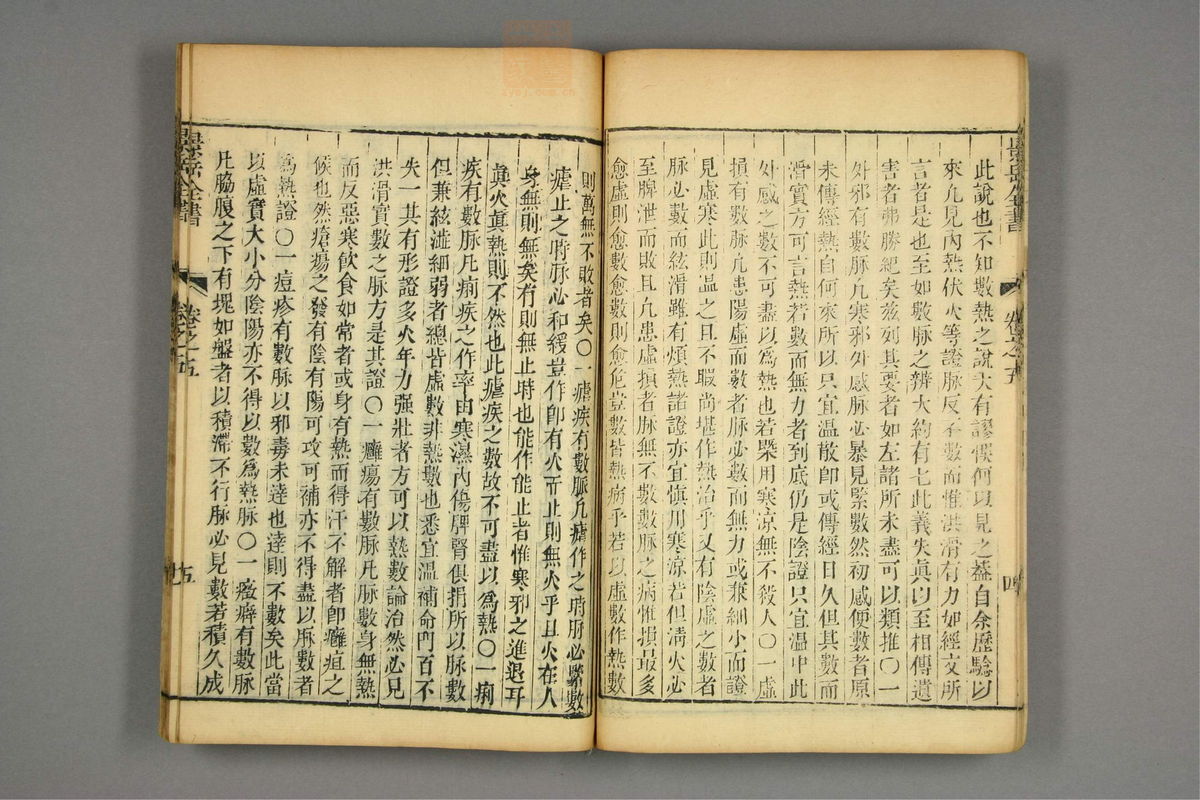 景岳全書
卷之五
四
此說也不知數熱之說大有謬悞何以見之蓋自余歷驗以
來凡見內熱伏火等證脉反不數而惟洪滑有力如經文所
言者是也至如數脉之辨大約有七此義失真以至相傳遺
害者弗勝紀矣兹列其要者如左諸所未盡可以類推〇一
外邪有數脉凡寒邪外感脉必暴見緊數然初感便數者原
未傳經熱自何來所以只宜温散卽或傳經日久但其數而
滑實方可言熱若數而無力者到底仍是陰證只宜温中此
外感之數不可盡以爲熱也若槩用寒凉無不殺人〇一虚
損有數脉凡患陽虚而數者脉必數而無力或兼細小而證
見虚寒此則温之且不暇尚堪作熱治乎又有陰虚之數者
脉必數而絃滑雖有煩熱諸證亦宜慎用寒凉若但清火必
至脾泄而敗且凡患虚損者脉無不數數脉之病惟損最多
愈虚則愈數愈數則愈危豈數皆熱病乎若以虚數作熱數
則萬無不敗者矣〇一瘧疾有數脈凡瘧作之時脉必緊數
瘧止之時脉必和緩豈作卽有火而止則無火乎且火在人
身無則無矣有則無止時也能作能止者惟寒邪之進退耳
眞火眞熱則不然也此瘧疾之數故不可盡以爲熱〇一痢
疾有數脉凡痢疾之作率由寒濕內傷脾腎俱損所以脉數
但兼絃澁細弱者總皆虚數非熱數也悉宜温補命門百不
失一其有形證多火年力强壯者方可以熱數論治然必見
洪滑實數之脉方是其證〇一癰瘍有數脉凡脉數身無熱
而反惡寒飲食如常者或身有熱而得汗不解者卽癰疽之
候也然瘡瘍之發有陰有陽可攻可補亦不得盡以脉數者
爲熱證〇一痘疹有數脉以邪毒未達也達則不數矣此當
以虚實大小分陰陽亦不得以數爲熱脉〇一癥癖有數脉
凡脇腹之下有塊如盤者以積滯不行脉必見數若積久成
景岳全書
卷之五
五